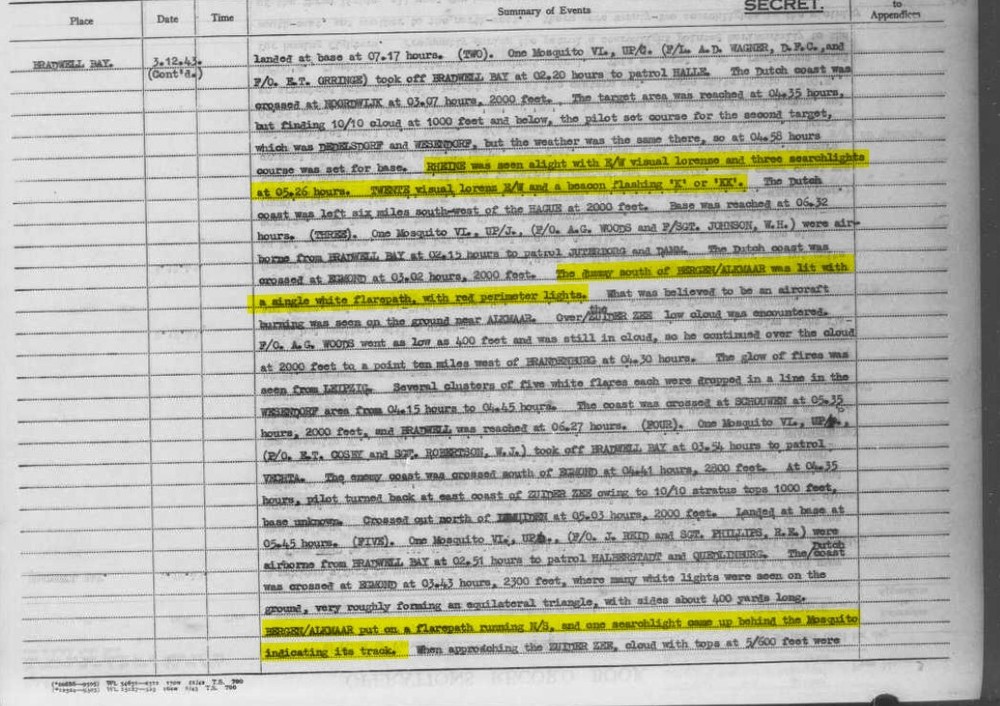 SECRET.
Place Date Time Summary of Events to Appendices
BRADWELL BAY. 3.12.43. landed at base at 07.17 hours. (TWO). One Mosquito VI., (F/L. A.D. WAGNER, D.F.C., and
(Cont'd.) F/O. E.T. ORRINGE) took off BRADWELL BAY at 02.20 hours to patrol HALLE. The Dutch coast was
crossed at NOORDWIJK at 03.07 hours, 2000 feet. The target area was reached at 04.35 hours,
but finding 10/10 cloud at 1000 feet and below, the pilot set course for the second target,
which was DEDELSDORF and WESENDORF, but the weather was the same there, so at 04.58 hours
course was set for base. RHEINE was seen alight with E/W visual lorense and three searchlights
at 05.26 hours. TWENTE visual lorenz E/W and a beacon flashing 'K' or 'KK'. The Dutch
coast was left six miles south-west of the HAGUE at 2000 feet. Base was reached at 06.32
hours. (THREE). One Mosquito VI., UP/J., (F/O. A.G. WOODS and F/SGT. JOHNSON, W.H.) were air-
borne from BRADWELL BAY at 02.15 hours to patrol JUTERBORG and DAMM. The Dutch coast was
crossed at EGMOND at 03.02 hours, 2000 feet. The dummy south of BERGEN/ALKMAAR was lit with
a single white flarepath, with red perimeter lights. What was believed to be an aircraft
burning was seen on the ground near ALKMAAR. Over/the ZUIDER ZEE low cloud was encountered.
F/O. A.G. WOODS went as low as 400 feet and was still in cloud, so he continued over the cloud
at 2000 feet to a point ten miles west of BRANDENBURG at 04.30 hours. The glow of fires was
seen from LEIPZIG. Several clusters of five white flares each were dropped in a line in the
WESENDORF area from 04.15 hours to 04.45 hours. The coast was crossed at SCHOUWEN at 05.35
hours, 2000 feet, and BRADWELL was reached at 06.27 hours. (FOUR). One Mosquito VI.,
(P/O. E.T. COSBY and SGT. ROBERTSON, W.J.) took off BRADWELL BAY at 03.54 hours to patrol
VECHTA. The enemy coast was crossed south of EGMOND at 04.41 hours, 2800 feet. At 04.35
hours, pilot turned back at east coast of ZUIDER ZEE owing to 10/10 stratus tops 1000 feet,
base unknown. Crossed out north of IJMUIDEN at 05.03 hours, 2000 feet. Landed at base at
05.45 hours. (FIVE). One Mosquito VI., (F/O. J. REID and SGT. PHILLIPS, R.E.) were
airborne from BRADWELL BAY at 02.51 hours to patrol HALBERSTADT and QUEDLINBURG. The/Dutch coast
was crossed at EGMOND at 03.43 hours, 2300 feet, where many white lights were seen on the
ground, very roughly forming an equilateral triangle, with sides about 400 yards long.
BERGEN/ALKMAAR put on a flarepath running N/S, and one searchlight came up behind the Mosquito
indicating its track. When approaching the ZUIDER ZEE, cloud with tops at 5/600 feet were